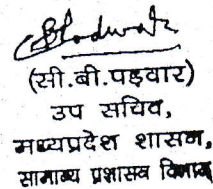 (सी.बी.पडवार)
उप सचिव,
मध्यप्रदेश शासन,
सामान्य प्रशासन विभाग